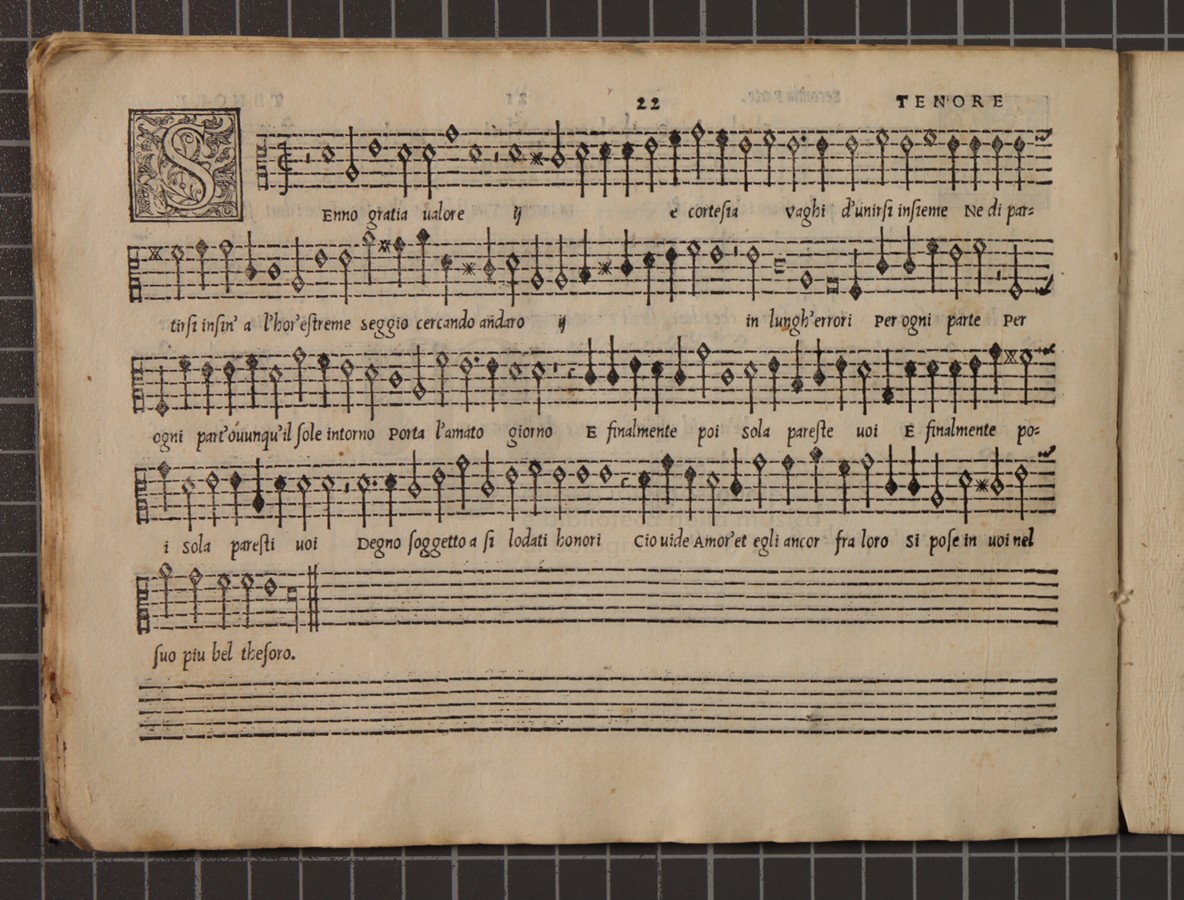 22 TENORE
S Enno gratia ualore ij e cortesia Vaghi d'unirsi insieme Ne di par=
tirsi insin' a l'hor'estreme Seggio cercando andaro ij in lungh'errori Per ogni parte Per
ogni part'ouunqu'il sole intorno Porta l'amato giorno E finalmente poi Sola pareste uoi E finalmente po=
i Sola paresti uoi Degno soggetto a si lodati honori Cio uide Amor'et egli ancor fra loro Si pose in uoi nel
suo piu bel thesoro.